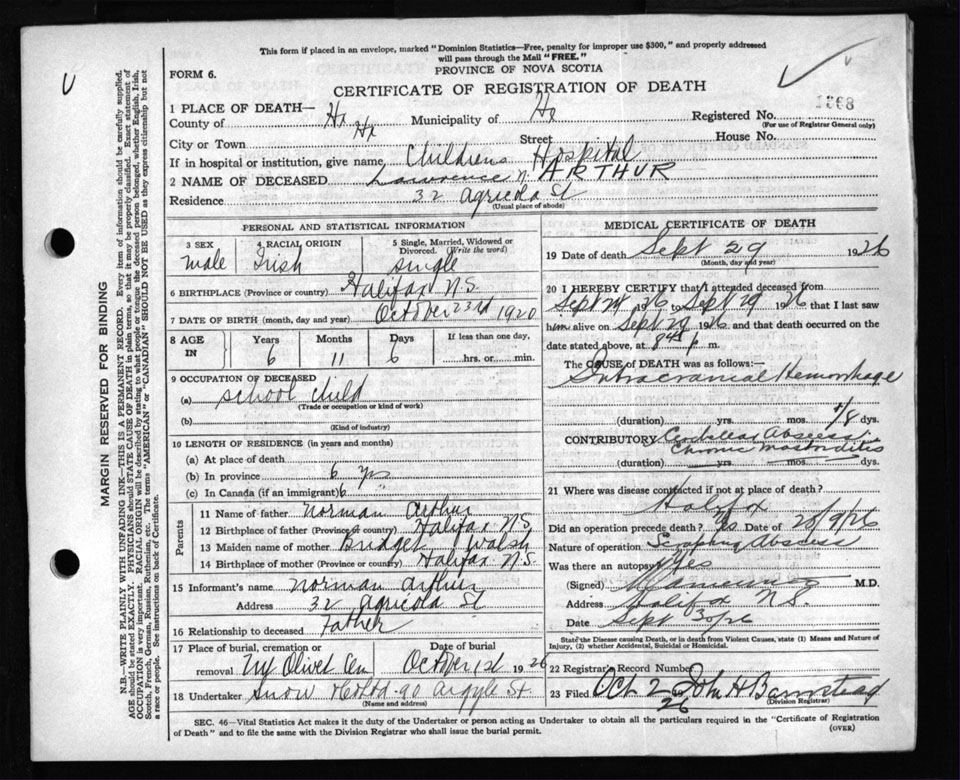 This form if placed in an envelope, marked "Dominion Statistics—Free, penalty for improper use $300," and properly addressed
will pass through the Mail "FREE."
PROVINCE OF NOVA SCOTIA
FORM 6.
CERTIFICATE OF REGISTRATION OF DEATH
MARGIN RESERVED FOR BINDING
N.B.—WRITE PLAINLY WITH UNFADING INK—THIS IS A PERMANENT RECORD. Every item of information should be carefully supplied.
AGE should be stated EXACTLY. PHYSICIANS should STATE CAUSE OF DEATH in plain terms, so that it may be properly classified. Exact statement of
OCCUPATION is very important. RACIAL ORIGIN will be described by stating to what people or tongue the deceased person belonged, whether English, Irish,
Scotch, French, German, Russian, Ruthenian, etc. The terms "AMERICAN" or "CANADIAN" SHOULD NOT BE USED as they express citizenship but not
a race or people. See instructions on back of Certificate.
1 PLACE OF DEATH—
County of Hx Municipality of Hx Registered No. 1368
(For use of Registrar General only)
City or Town Hx Street House No.
If in hospital or institution, give name, Childrens Hospital
2 NAME OF DECEASED Lawrence N. ARTHUR
Residence 32 Agricola St
(Usual place of abode)
PERSONAL AND STATISTICAL INFORMATION
3 SEX male
4 RACIAL ORIGIN Irish
5 Single, Married, Widowed or Divorced. (Write the word) single
6 BIRTHPLACE (Province or country) Halifax N.S.
7 DATE OF BIRTH (month, day and year) October 23rd 1920
8 AGE IN Years Months Days If less than one day,
6 11 6 hrs. or min.
9 OCCUPATION OF DECEASED
(a) school child
(Trade or occupation or kind of work)
(b)
(Kind of industry)
10 LENGTH OF RESIDENCE (in years and months)
(a) At place of death
(b) In province 6 yrs
(c) In Canada (if an immigrant) 6
Parents
11 Name of father Norman Arthur
12 Birthplace of father (Province or country) Halifax N.S.
13 Maiden name of mother Bridget Walsh
14 Birthplace of mother (Province or country) Halifax N.S.
15 Informant's name Norman Arthur
Address 32 Agricola St
16 Relationship to deceased Father
17 Place of burial, cremation or removal Mt Olivet Cem Date of burial October 1st 1926
18 Undertaker Snow & Co Ltd. 90 Argyle St.
(Name and address)
MEDICAL CERTIFICATE OF DEATH
19 Date of death Sept 29 1926
(Month, day and year)
20 I HEREBY CERTIFY that I attended deceased from
Sept 28 1926 to Sept 29 1926 that I last saw
him alive on Sept 29 1926 and that death occurred on
date stated above, at p m.
The CAUSE OF DEATH was as follows:—
Intracranial Hemorrhage
(duration) yrs. mos. 1/8 dys.
CONTRIBUTORY Cerebellar Abscess
Chronic Mastoiditis
(duration) yrs. mos. dys.
21 Where was disease contracted if not at place of death?
Halifax
Did an operation precede death? Yes Date of 28/9/26
Nature of operation Scooping Abscess
Was there an autopsy? Yes
(Signed) M.D.
Address Halifax N.S.
Date Sept 30/26
State the Disease causing Death, or in death from Violent Causes, state (1) Means and Nature of
Injury, (2) whether Accidental, Suicidal or Homicidal.
22 Registrar's Record Number
23 Filed Oct 2 1926 John H Barnstead
(Division Registrar)
SEC. 46—Vital Statistics Act makes it the duty of the Undertaker or person acting as Undertaker to obtain all the particulars required in the "Certificate of Registration
of Death" and to file the same with the Division Registrar who shall issue the burial permit.
(OVER)